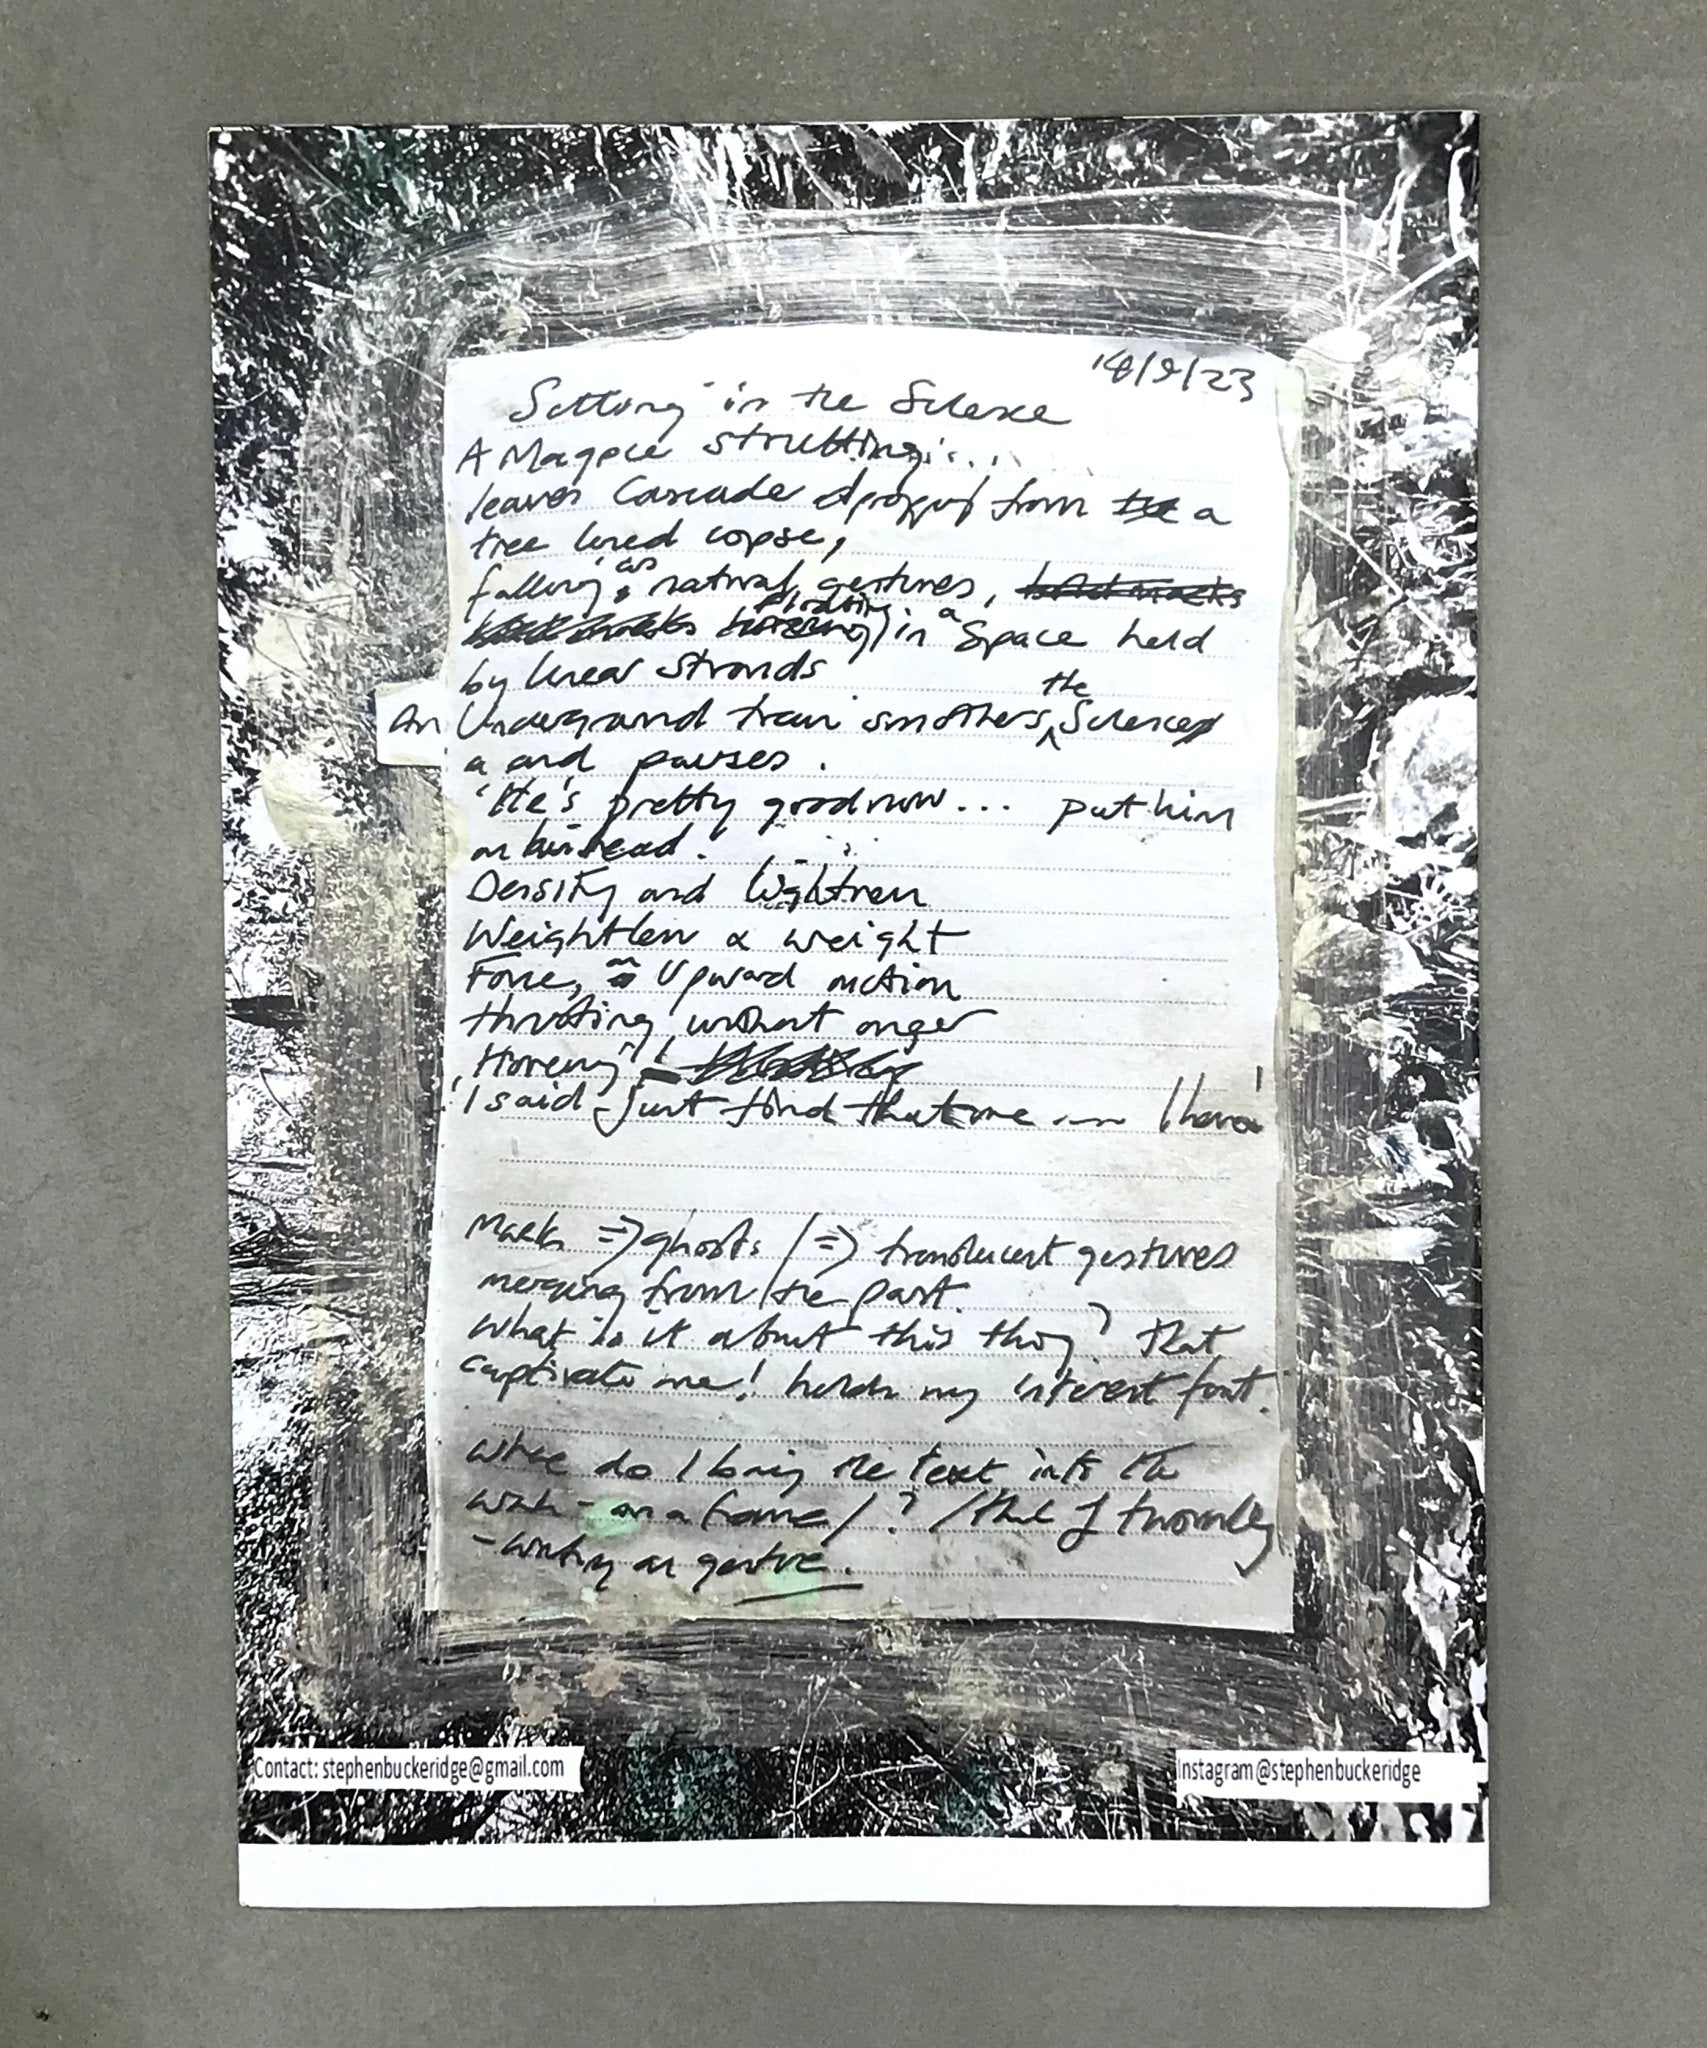 18/9/23
Sitting in the Silence
A Magpie strutting...
leaves Cascade from a
tree lined copse,
falling as natural gestures,
floating in a Space held
by linear strands
An Underground train smothers the Silence
a and pauses.
'He's pretty good now... put him
on his head.
Density and lightness
Weightless & weight
Force, an Upward motion
thrusting without anger
Hovering
'I said just find that one I have'
Marks => ghosts / => translucent gestures
merging from the past.
What is it about this thing? that
captivate me! holds my interest fast.
Where do I bring the text into the
work - on a frame/? /think of twombly
- writing as gesture.
Contact: stephenbuckeridge@gmail.com
instagram@stephenbuckeridge